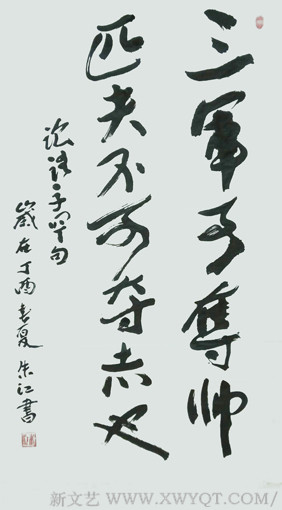 三軍可奪帥
匹夫不可夺志也
論語子罕句
歲在丁酉夏朱江書
新文艺 WWW.XWYQT.COM